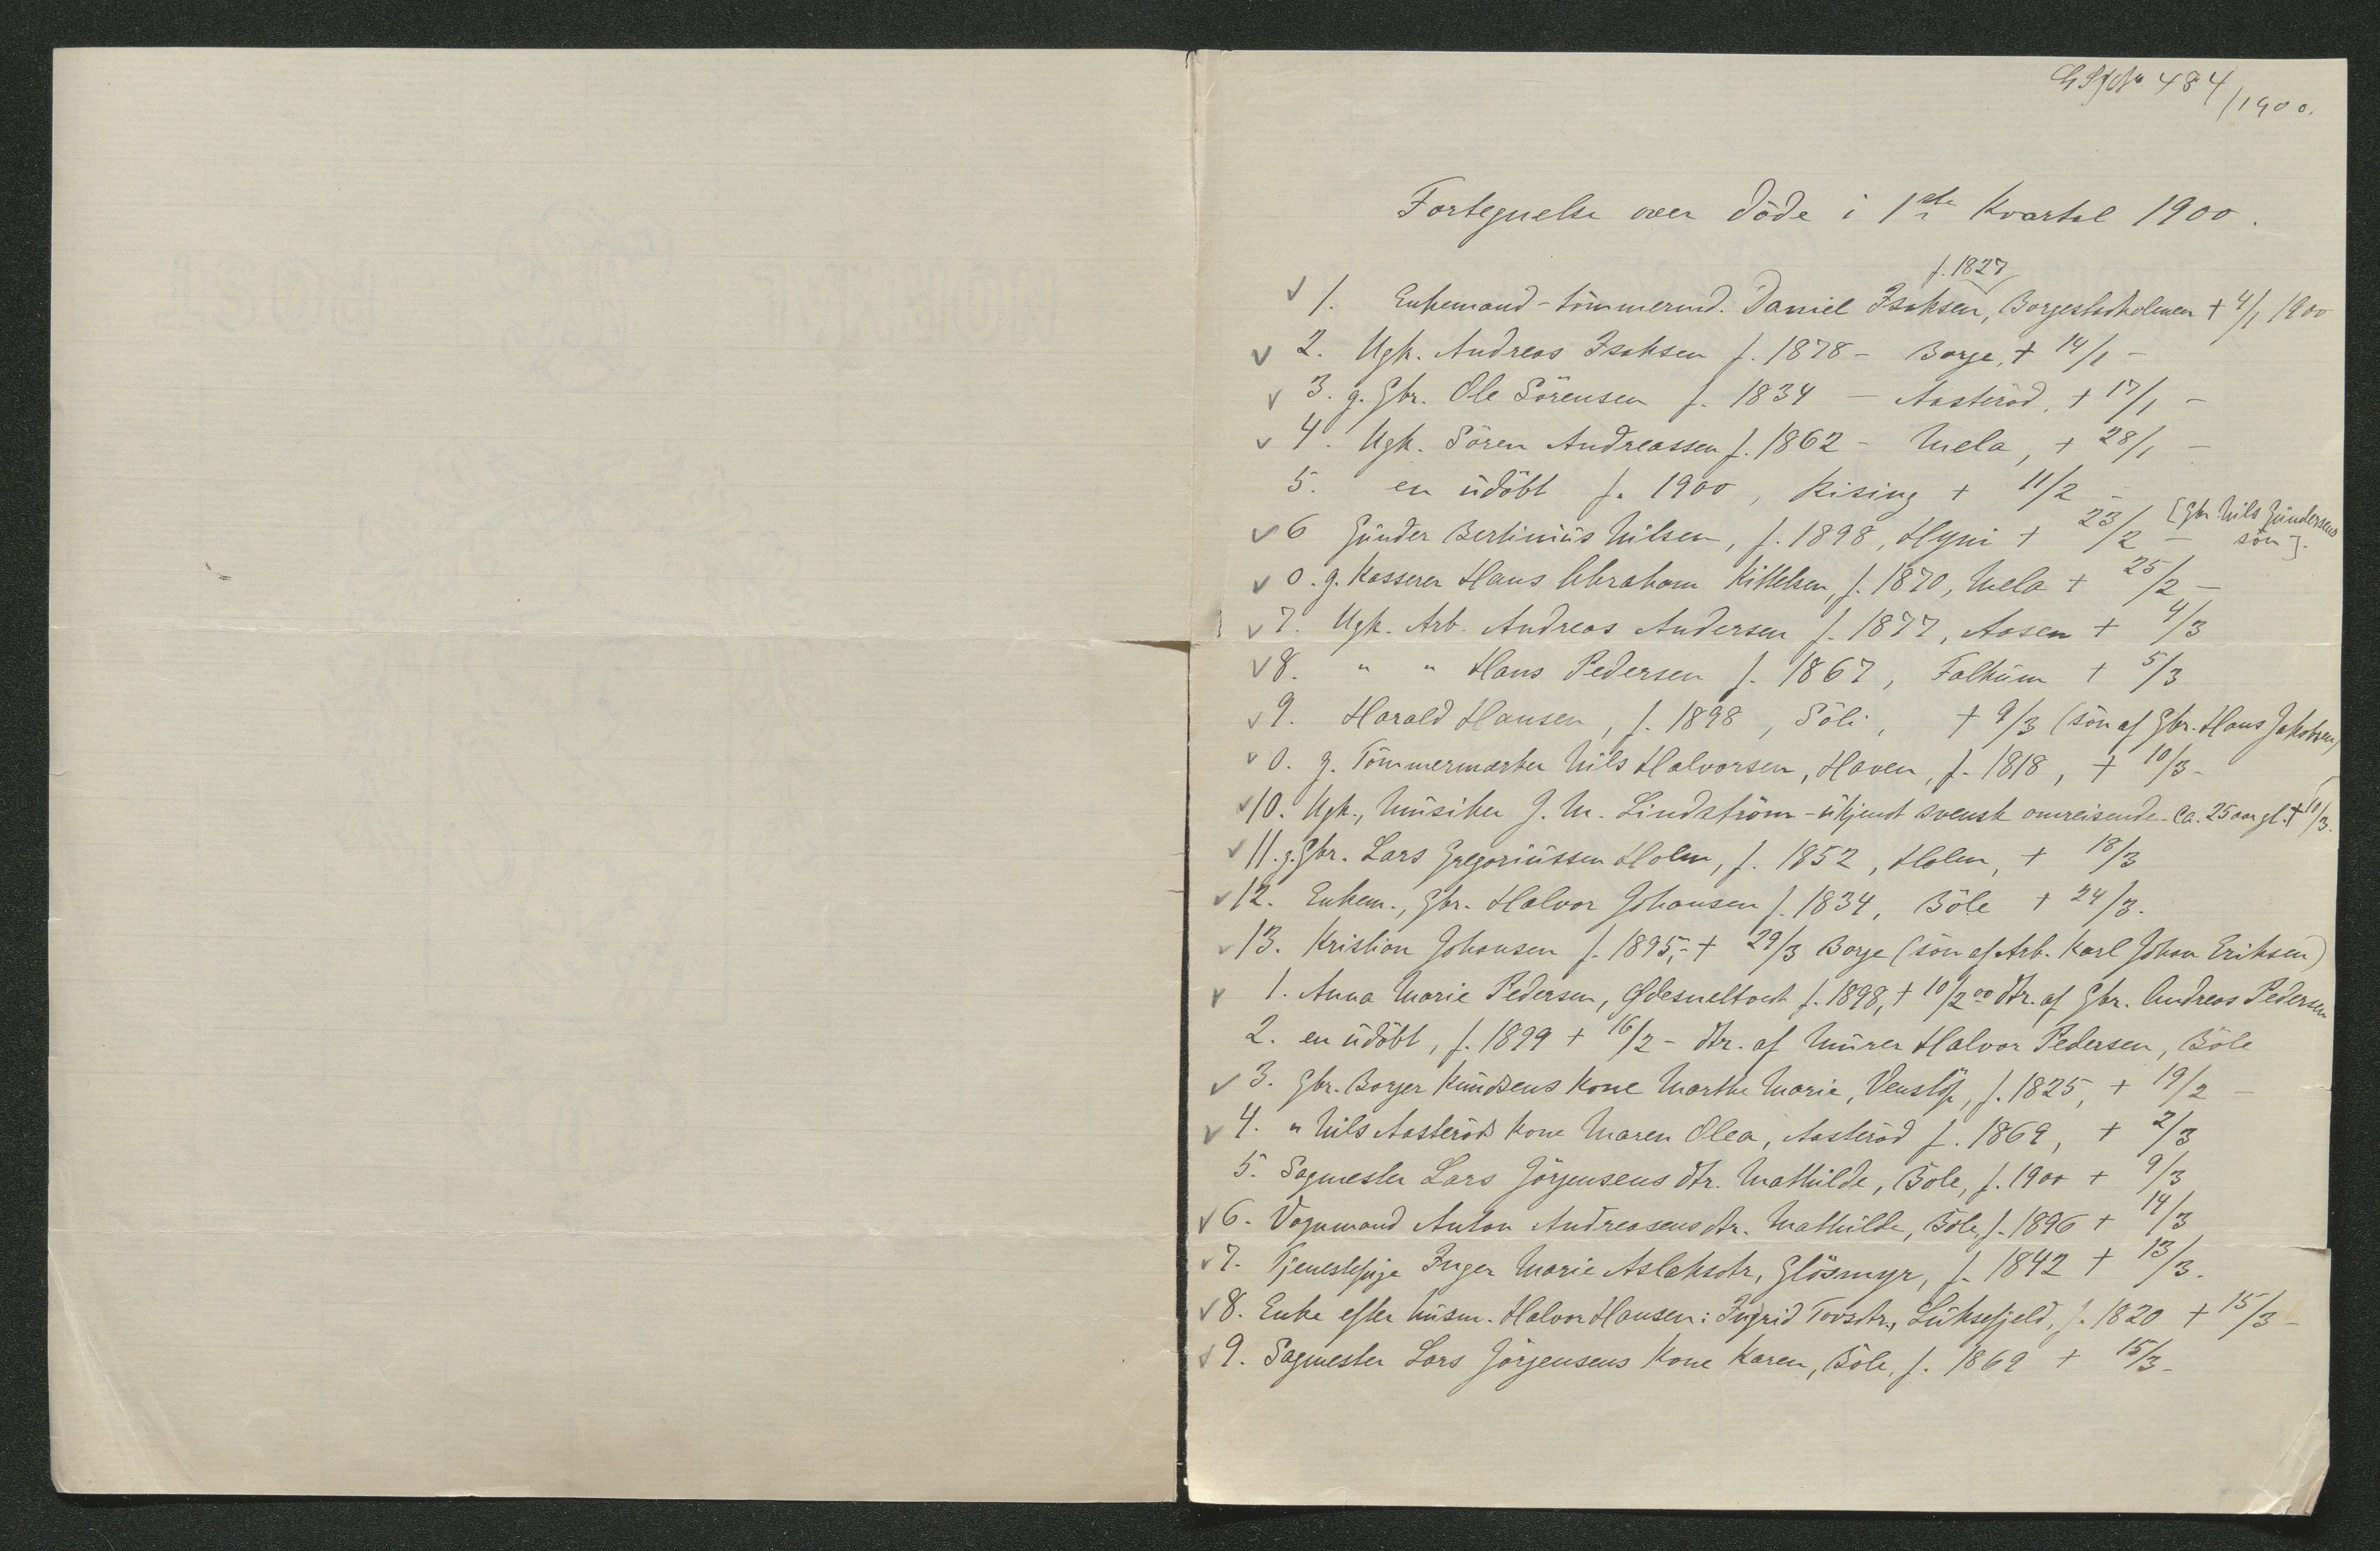 484/1900.
Fortegnelse over döde i 1ste Kvartal 1900.
f. 1827
✓ 1. Enkemand-tömmermd. Daniel Isaksen, Borgestadholmen + 4/1 1900
✓ 2. Ugk. Andreas Isaksen f. 1878 - Borge, + 14/1 -
✓ 3. g. Gbr. Ole Sörensen f. 1834 - Aasteröd, + 17/1 -
✓ 4. Ugk. Sören Andreassen f. 1862 - Mela, + 28/1 -
5. en udöbt f. 1900, Rising + 11/2 -
✓ 6 Gunder Bertinius Nilsen, f. 1898, Hyni + 23/2 - [Gbr. Nils Gundersens sön].
✓ 0. g. Kasserer Hans Abraham Kittelsen, f. 1870, Mela + 25/2 -
✓ 7. Ugk. Arb. Andreas Andersen f. 1877, Aasen + 4/3
✓ 8. " " Hans Pedersen f. 1867, Falkum + 5/3
✓ 9. Harald Hansen, f. 1898, Söli, + 9/3 (sön af Gbr. Hans Jakobsen)
✓ 0. g. Tömmermærker Nils Halvorsen, Haven, f. 1818, + 10/3 -
✓ 10. Ugk., Musiker J. M. Lindström - ukjendt svensk omreisende. Ca. 25 aar gl. + 10/3.
✓ 11. g. Gbr. Lars Gregoriussen Holm, f. 1852, Holm, + 18/3
✓ 12. Enkem., Gbr. Halvor Johansen f. 1834, Böle + 24/3.
✓ 13. Kristian Johansen f. 1895, - + 29/3 Borge (sön af Arb. Karl Johan Eriksen)
✓ 1. Anna Marie Pedersen, Ødesneltvedt f. 1898, + 10/2 00 dtr. af Gbr. Andreas Pedersen
2. en udöbt, f. 1899 + 16/2 - dtr. af Murer Halvor Pedersen, Böle
✓ 3. Gbr. Borger Knudsens Kone Marthe Marie, Venstöp, f. 1825, + 19/2 -
✓ 4. " Nils Aasteröds Kone Maren Olea, Aasteröd f. 1869, + 2/3
5. Sagmester Lars Jörgensens dtr. Mathilde, Böle, f. 1900 + 9/3
✓ 6. Vognmand Anton Andreasens dtr. Mathilde, Böle, f. 1896 + 14/3
✓ 7. Tjenestepige Inger Marie Aslaksdtr, Glösmyr, f. 1842 + 13/3.
✓ 8. Enke efter husm. Halvor Hansen: Ingrid Torsdtr., Luksefjeld, f. 1820 + 15/3 -
✓ 9. Sagmester Lars Jörgensens Kone Karen, Böle, f. 1869 + 15/3 -